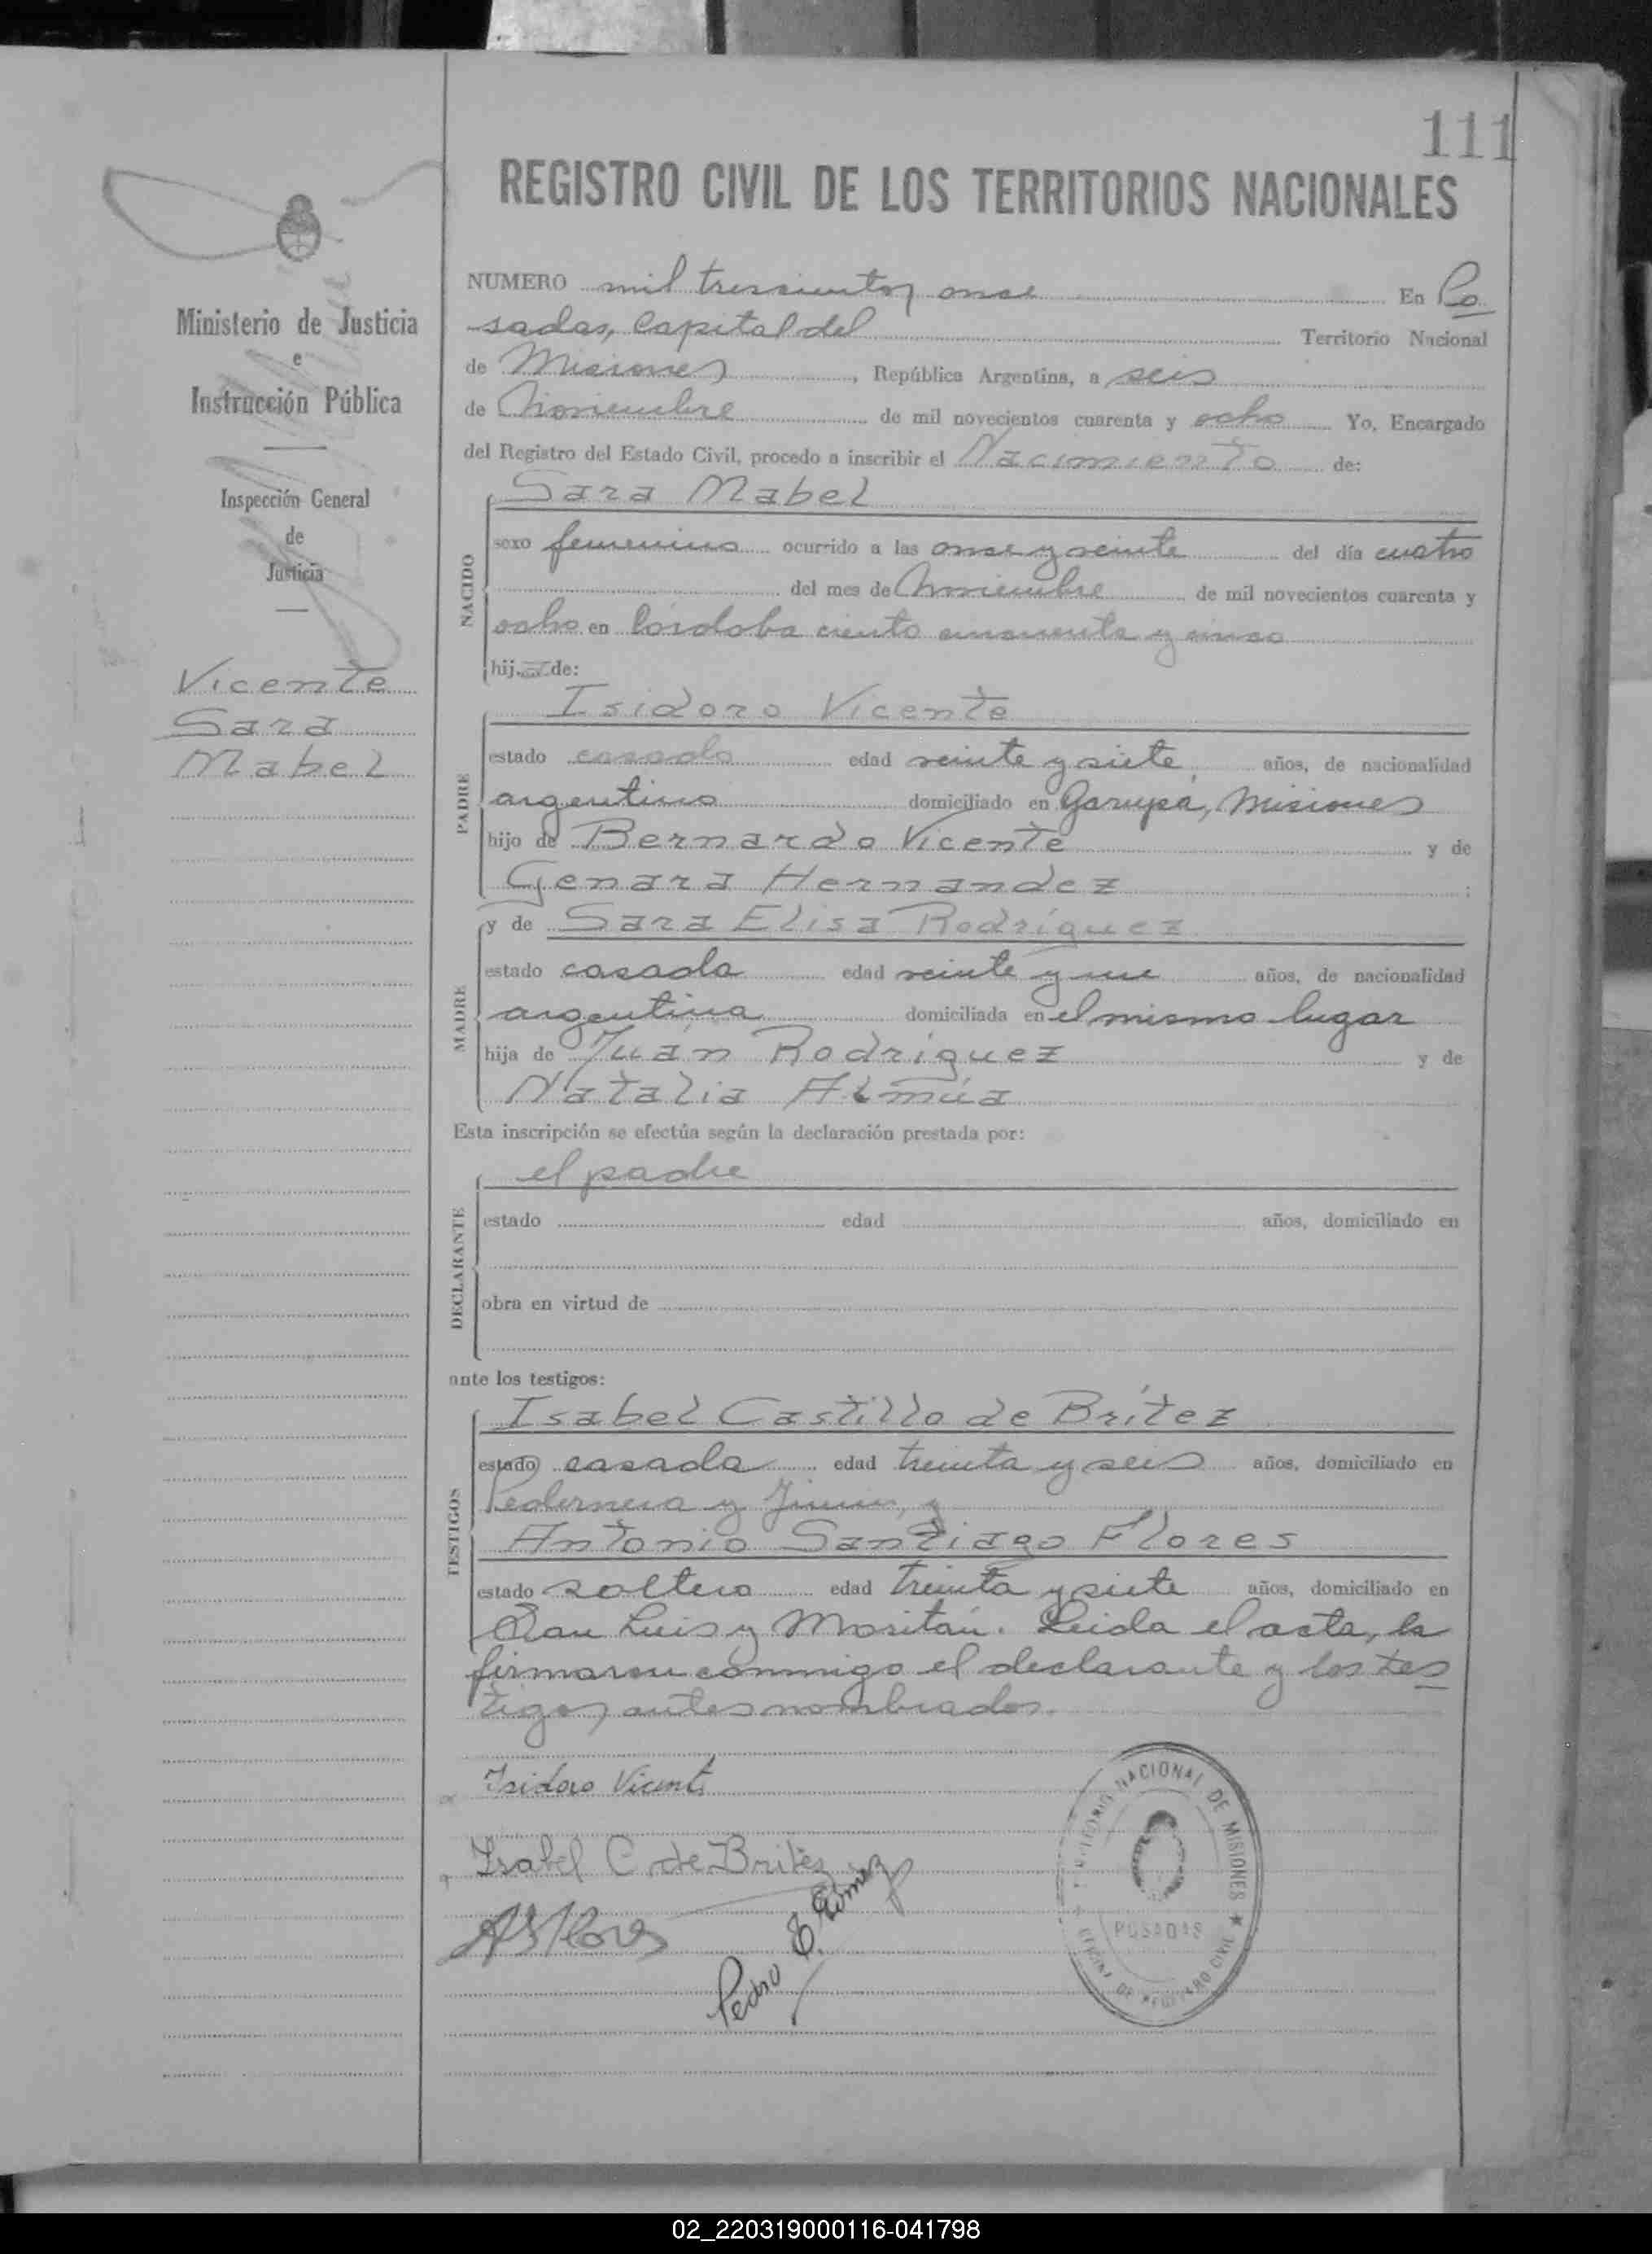 111
REGISTRO CIVIL DE LOS TERRITORIOS NACIONALES
Ministerio de Justicia
e
Instrucción Pública
Inspección General
de
Justicia
Vicente
Sara
Mabel
NUMERO mil trescientos once En Po
sadas, Capital del Territorio Nacional
de Misiones, República Argentina, a seis
de Noviembre de mil novecientos cuarenta y ocho Yo, Encargado
del Registro del Estado Civil, procedo a inscribir el Nacimiento de:
NACIDO
Sara Mabel
sexo femenino ocurrido a las once y veinte del día cuatro
del mes de Noviembre de mil novecientos cuarenta y
ocho en Córdoba ciento cincuenta y cinco
hija de:
PADRE
Isidoro Vicente
estado casado edad veinte y siete, años, de nacionalidad
argentino domiciliado en Garupa, Misiones
hijo de Bernardo Vicente y de
Genara Hernandez ;
MADRE
y de Sara Elisa Rodríguez
estado casada edad veinte y un años, de nacionalidad
argentina domiciliada en el mismo lugar
hija de Juan Rodríguez y de
Natalia
Esta inscripción se efectúa según la declaración prestada por:
DECLARANTE
el padre
estado edad años, domiciliado en
obra en virtud de
ante los testigos:
TESTIGOS
Isabel Castillo de Brítez
estado casada edad treinta y seis años, domiciliado en
Pedernera y y
Antonio Santiago Flores
estado soltero edad treinta y siete años, domiciliado en
San Luis y Moritán. Leida el acta, la
firmaron conmigo el declarante y los tes
tigos antes nombrados.
Isidoro Vicente
Isabel C de Britez
AS Flores
Pedro E. Gómez
TERRITORIO NACIONAL DE MISIONES
POSADAS
OFICINA DE REGISTRO CIVIL
02_220319000116-041798